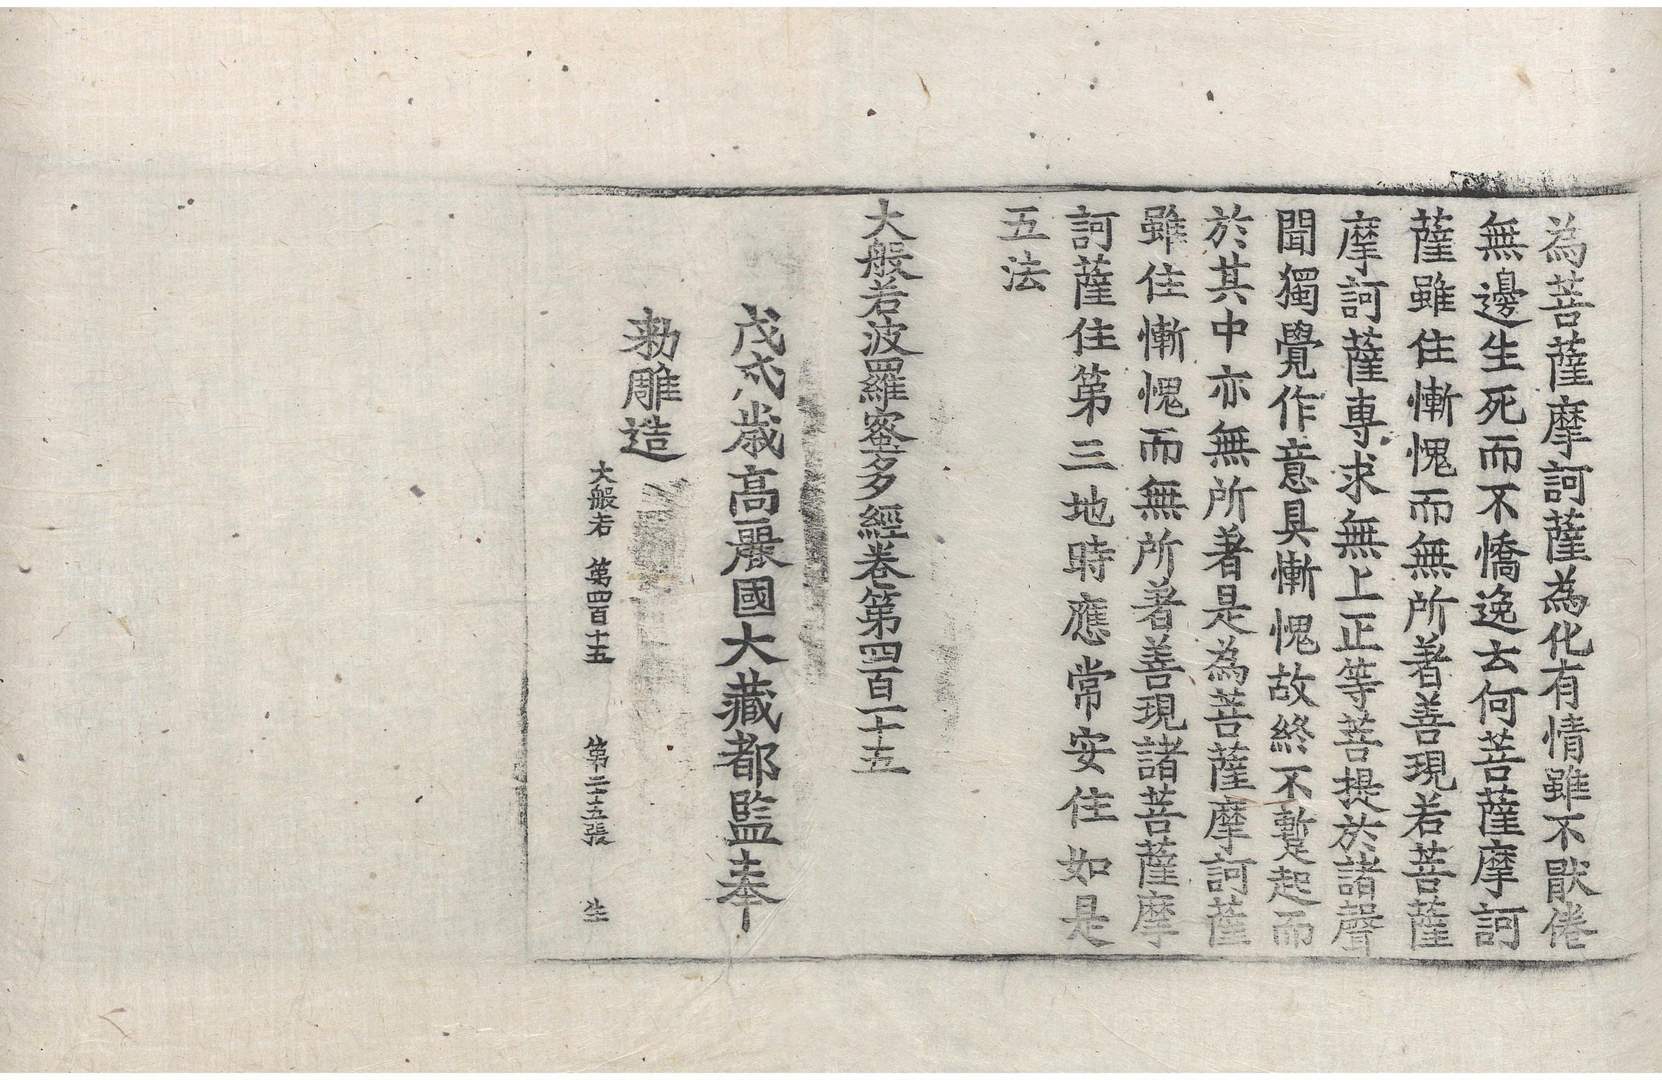 為菩薩摩訶薩為化有情雖不猒倦
無邊生死而不憍逸云何菩薩摩訶
薩雖住慚愧而無所著善現若菩薩
摩訶薩專求無上正等菩提於諸聲
聞獨覺作意具慚愧故終不蹔起而
於其中亦無所著是為菩薩摩訶薩
雖住慚愧而無所著善現諸菩薩摩
訶薩住第三地時應常安住如是
五法
大般若波羅蜜多經卷第四百一十五
戊戌歲高麗國大藏都監奉
勅雕造
大般若 第四百十五 第二十五張 生